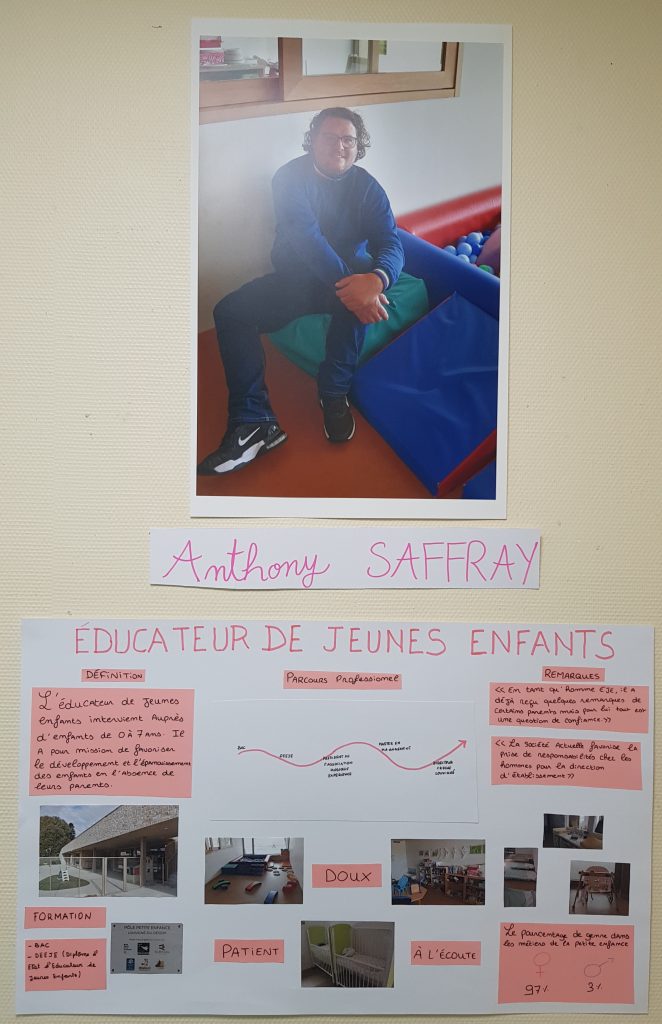 Anthony SAFFRAY
ÉDUCATEUR DE JEUNES ENFANTS
DÉFINITION
L'éducateur de jeunes
enfants intervient Auprès
d'enfants de 0 à 7 ans. Il
A pour mission de favoriser
le développement et l'épanouissement
des enfants en l'Absence de
leurs parents.
PARCOURS PROFESSIONNEL
BAC
DEEJE
PRÉSIDENT DE
L'ASSOCIATION
EXPÉRIENCE
MASTER EN
MANAGEMENT
DIRECTEUR
CRÈCHE
LOUVIGNÉ
REMARQUES
<< En tant qu'Homme EJE, il a
DÉJÀ reçu quelques remarques de
certains parents mais pour lui tout est
une question de confiance >>
<< La Société Actuelle favorise la
prise de responsabilités chez les
hommes pour la direction
d'établissement >>
DOUX
PATIENT
À L'ÉCOUTE
FORMATION
- BAC
- DEEJE (Diplôme d'
Etat d'Educateur de
Jeunes Enfants)
PÔLE PETITE ENFANCE
Le pourcentage de genre dans
les métiers de la petite enfance
♀ ♂
97% 3%